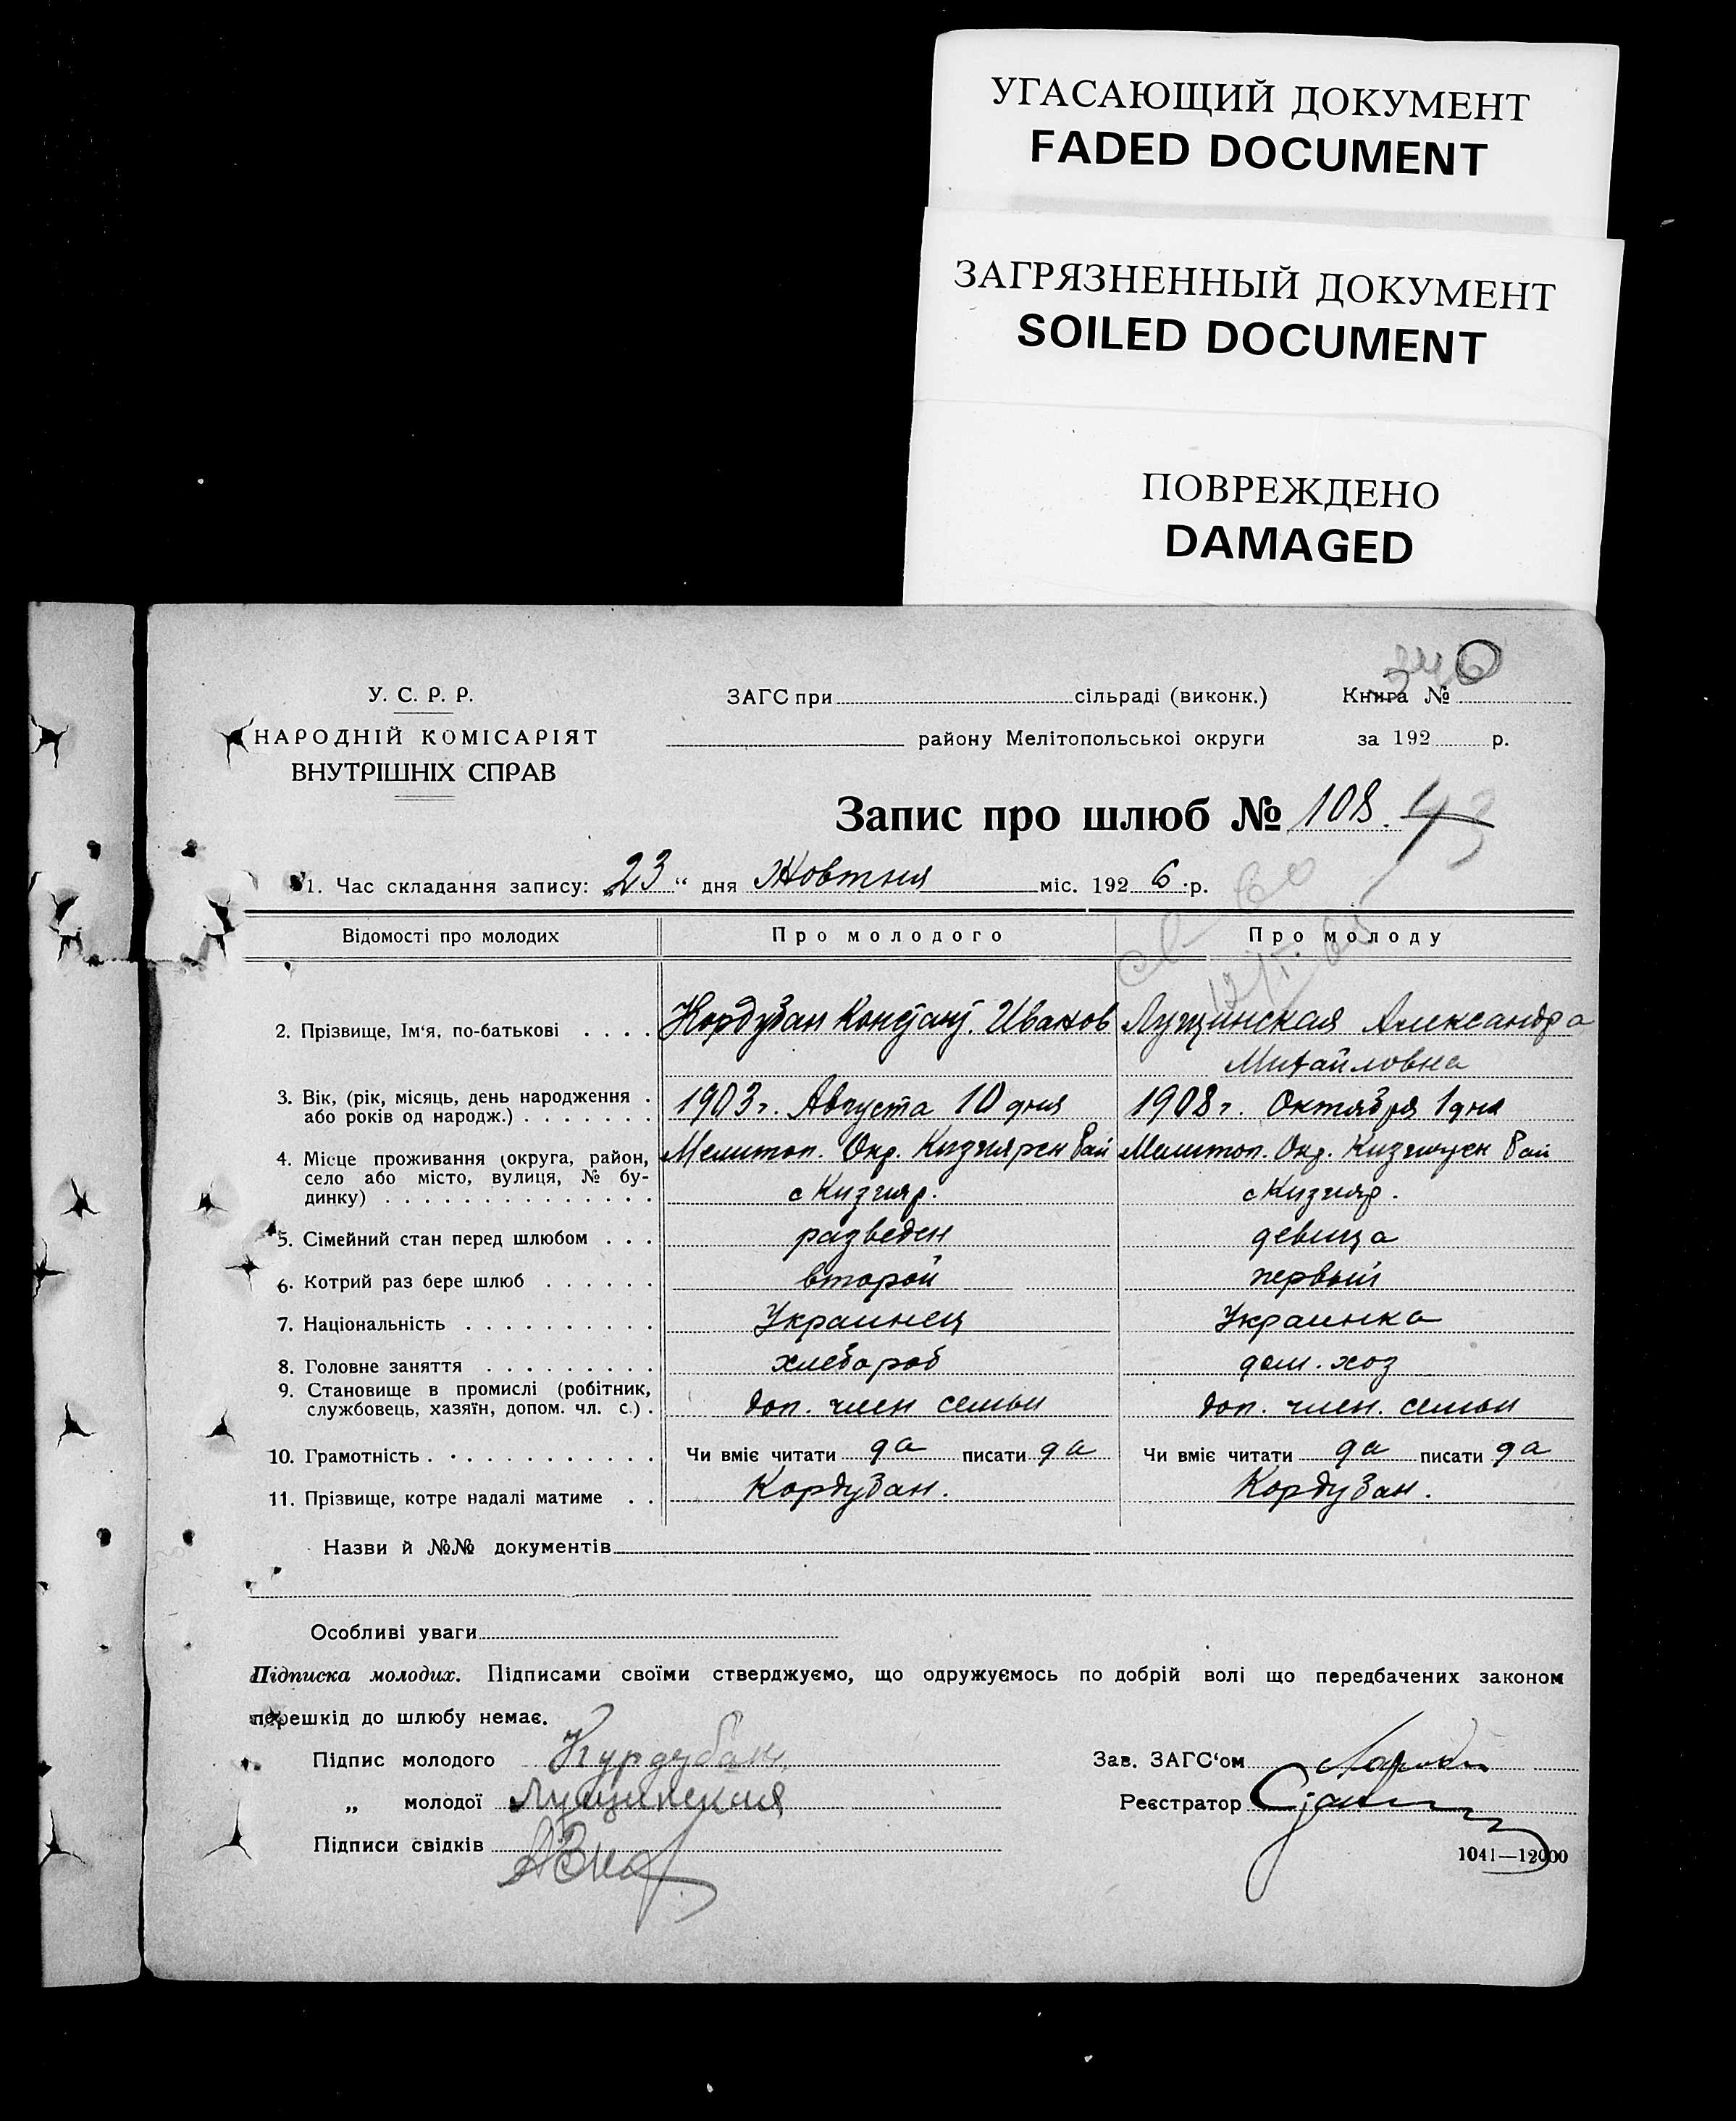 УГАСАЮЩИЙ ДОКУМЕНТ
FADED DOCUMENT
ЗАГРЯЗНЕННЫЙ ДОКУМЕНТ
SOILED DOCUMENT
ПОВРЕЖДЕНО
DAMAGED
У. С. Р. Р.
НАРОДНІЙ КОМІСАРІЯТ
ВНУТРІШНІХ СПРАВ
ЗАГС при сільраді (виконк.)
району Мелітопольської округи
Книга №
за 192 р.
Запис про шлюб № 108.
1. Час складання запису: „23" дня Жовтня міс. 1926 р.
Відомості про молодих Про молодого Про молоду
2. Прізвище, Ім'я, по-батькові . . . . Кордубан Констант. Иванов Лущинская Александра
Михайловна
3. Вік, (рік, місяць, день народження . 1903 г. Августа 10 дня 1908 г. Октября 1 дня
або років од народж.) . . . . . . .
4. Місце проживання (округа, район, Мелитоп. Окр. Кизиярск Рай Мелитоп. Окр. Кизиярск Рай
село або місто, вулиця, № бу-
динку) . . . . . . . . . . . . . . с Кизияр. с Кизияр.
5. Сімейний стан перед шлюбом . . . разведен девица
6. Котрий раз бере шлюб . . . . . . второй первый
7. Національність . . . . . . . . . . Украинец Украинка
8. Головне заняття . . . . . . . . . хлебороб дом. хоз
9. Становище в промислі (робітник,
службовець, хазяїн, допом. чл. с.) . доп. член семьи доп. член. семьи
10. Грамотність . . . . . . . . . . . Чи вміє читати да писати да Чи вміє читати да писати да
11. Прізвище, котре надалі матиме . . Кордубан. Кордубан.
Назви й №№ документів
Особливі уваги
Підписка молодих. Підписами своїми стверджуємо, що одружуємось по добрій волі що передбачених законом
перешкід до шлюбу немає.
Підпис молодого Курдубан Зав. ЗАГС'ом
„ молодої Лущинская Реєстратор
Підписи свідків
1041—12000